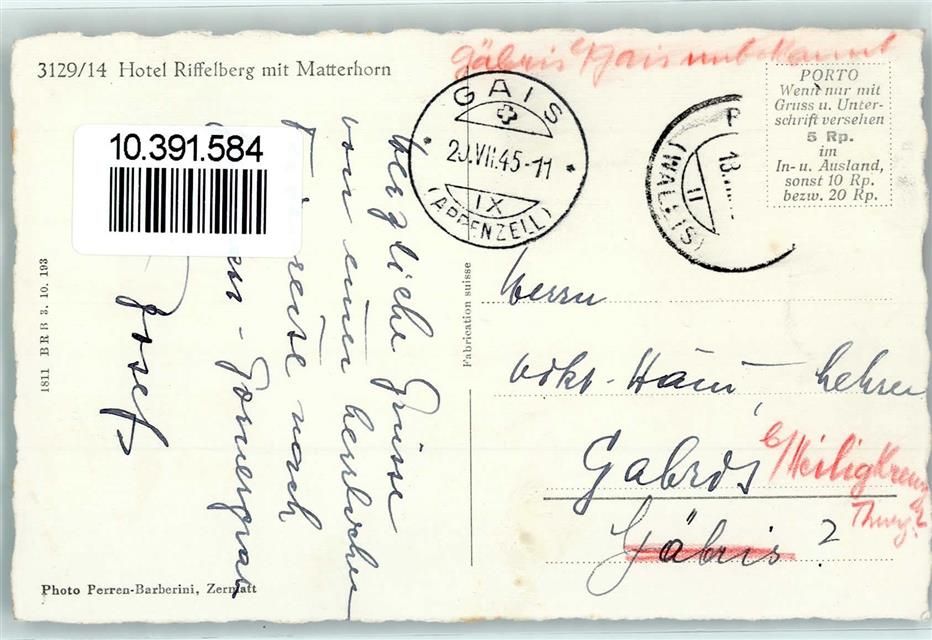 3129/14 Hotel Riffelberg mit Matterhorn
Gäbris b/Gais unbekannt
PORTO
Wenn nur mit
Gruss u. Unter-
schrift versehen
5 Rp.
im
In- u. Ausland,
sonst 10 Rp.
bezw. 20 Rp.
GAIS
20.VII.45-11
IX
(APPENZELL)
18.
II
(WALLIS)
10.391.584
Herzliche Grüsse
von einer herrlichen
reise nach
- Gornergrat
Josef
1811 BRB 3. 10. 193
Fabrication suisse
Herrn
Häni, Lehrer
Gabris b/Heiligkreuz
Thurg.
Gäbris ?
Photo Perren-Barberini, Zermatt